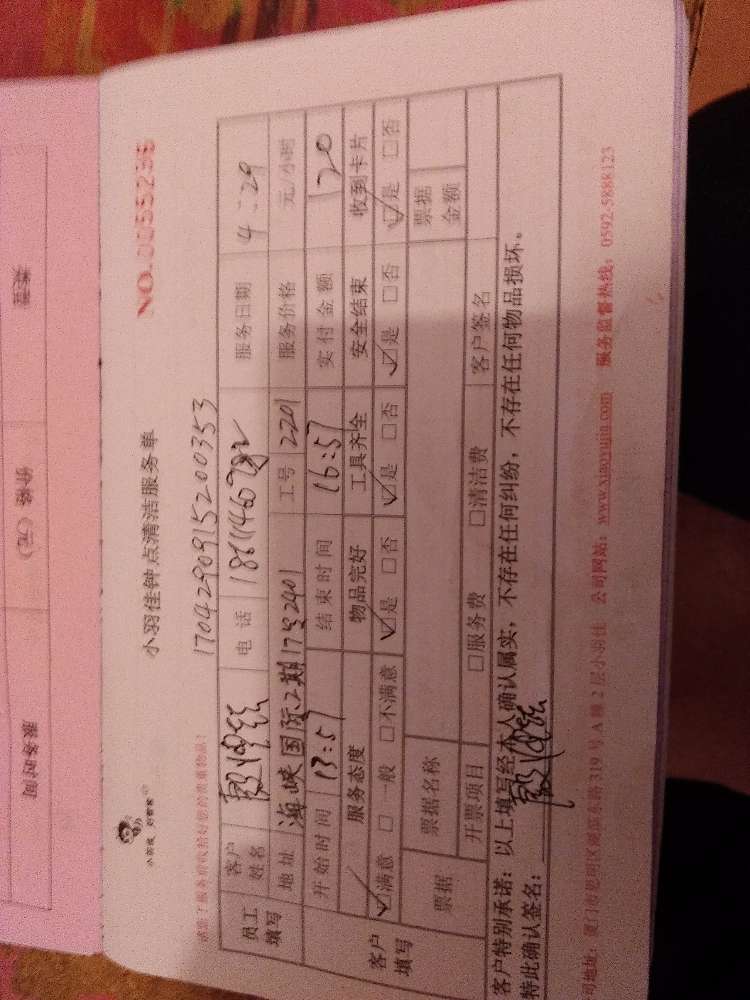 类型
价格（元）
服务时间
小羽佳 好管家
小羽佳钟点清洁服务单
NO.0055256
1704290915200353
员工填写
客户姓名
电话
服务日期
4.29
地址
海峡国际二期17号2401
工号
2201
服务价格
元/小时
开始时间
13:57
结束时间
16:57
实付金额
120
客户填写
服务态度
物品完好
工具齐全
安全结束
收到卡片
☑满意 □一般 □不满意
☑是 □否
☑是 □否
☑是 □否
☑是 □否
票据
票据名称
票据金额
开票项目
□服务费
□清洁费
客户签名
客户特别承诺：以上填写经本人确认属实，不存在任何纠纷，不存在任何物品损坏。
特此确认签名：
司地址：厦门市思明区湖滨东路319号A幢2层小羽佳 公司网站：www.xiaoyujia.com 服务监督热线：0592-5888123